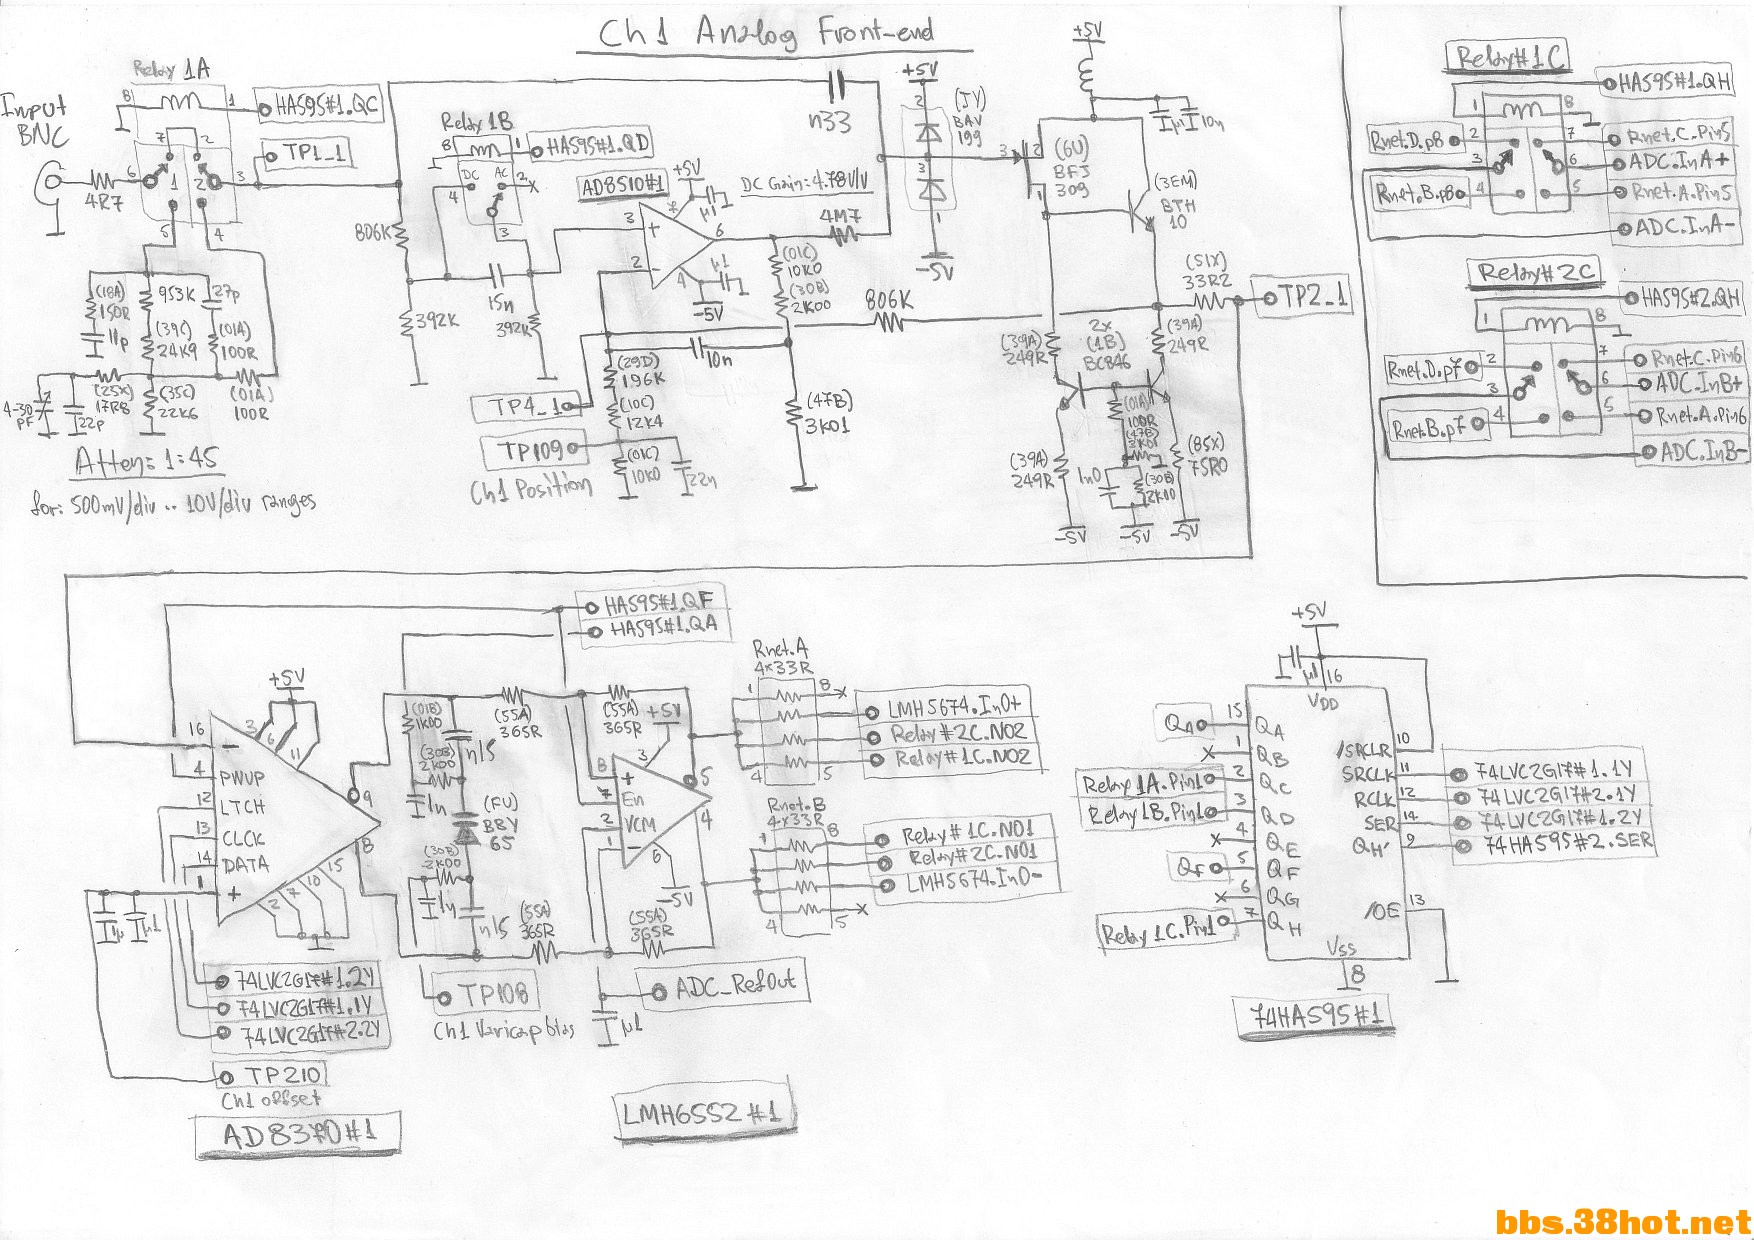 Ch1 Analog Front-end
Relay 1A
Input
BNC
8
1
HA595#1.QC
7
2
TP1_1
6
1
2
3
4R7
5
4
(18A)
150R
11p
953K
(39C)
24K9
27p
(01A)
100R
4-30
pF
22p
(25X)
17R8
(35C)
22K6
(01A)
100R
Atten: 1:45
for: 500mV/div .. 10V/div ranges
Relay 1B
8
1
HA595#1.QD
DC
AC
2
4
3
806K
392K
15n
392K
AD8510#1
+5V
µ1
3
7
+
6
2
-
4
µ1
-5V
DC Gain: 4.78V/V
4M7
(01C)
10K0
(30B)
2K00
806K
10n
(29D)
196K
(10C)
12K4
(01C)
10K0
22n
(47B)
3K01
TP4_1
TP109
Ch1 Position
n33
+5V
2
(JY)
BAV
199
3
1
-5V
+5V
µ1
10n
3
2
(6U)
BFJ
309
1
(3EM)
BTH
10
(51X)
33R2
TP2_1
(39A)
249R
2x
(1B)
BC846
(39A)
249R
(01A)
100R
(47B)
3K01
(39A)
249R
1n0
(30B)
2K00
(85X)
75R0
-5V
-5V
-5V
Relay#1C
HA595#1.QH
1
8
Rnet.D.p8
2
7
Rnet.C.Pin5
3
6
ADC.InA+
Rnet.B.p8
4
5
Rnet.A.Pin5
ADC.InA-
Relay#2C
HA595#2.QH
1
8
Rnet.D.p7
2
7
Rnet.C.Pin6
3
6
ADC.InB+
Rnet.B.p7
4
5
Rnet.A.Pin6
ADC.InB-
HA595#1.QF
HA595#1.QA
+5V
16
-
3
6
11
4
PWUP
12
LTCH
13
CLCK
14
DATA
1
+
2
7
10
15
9
8
1µ
µ1
74LVC2G17#1.2Y
74LVC2G17#1.1Y
74LVC2G17#2.2Y
TP210
Ch1 offset
AD8370#1
(01B)
1K00
n15
(30B)
2K00
1n
(FU)
BBY
65
(30B)
2K00
1n
n15
TP108
Ch1 Varicap bias
(55A)
365R
(55A)
365R
+5V
8
+
3
5
7
En
2
VCM
4
1
-
6
-5V
(55A)
365R
(55A)
365R
ADC_RefOut
µ1
LMH6552#1
Rnet.A
4x33R
1
8
4
5
LMH5674.In0+
Relay#2C.NO2
Relay#1C.NO2
Rnet.B
4x33R
1
8
4
5
Relay#1C.NO1
Relay#2C.NO1
LMH5674.In0-
+5V
µ1
16
VDD
QA
15
QA
1
QB
Relay 1A.Pin1
2
QC
Relay 1B.Pin1
3
QD
4
QE
QF
5
QF
6
QG
Relay 1C.Pin1
7
QH
/SRCLR
10
SRCLK
11
74LVC2G17#1.1Y
RCLK
12
74LVC2G17#2.1Y
SER
14
74LVC2G17#1.2Y
QH'
9
74HA595#2.SER
/OE
13
VSS
8
74HA595#1
bbs.38hot.net